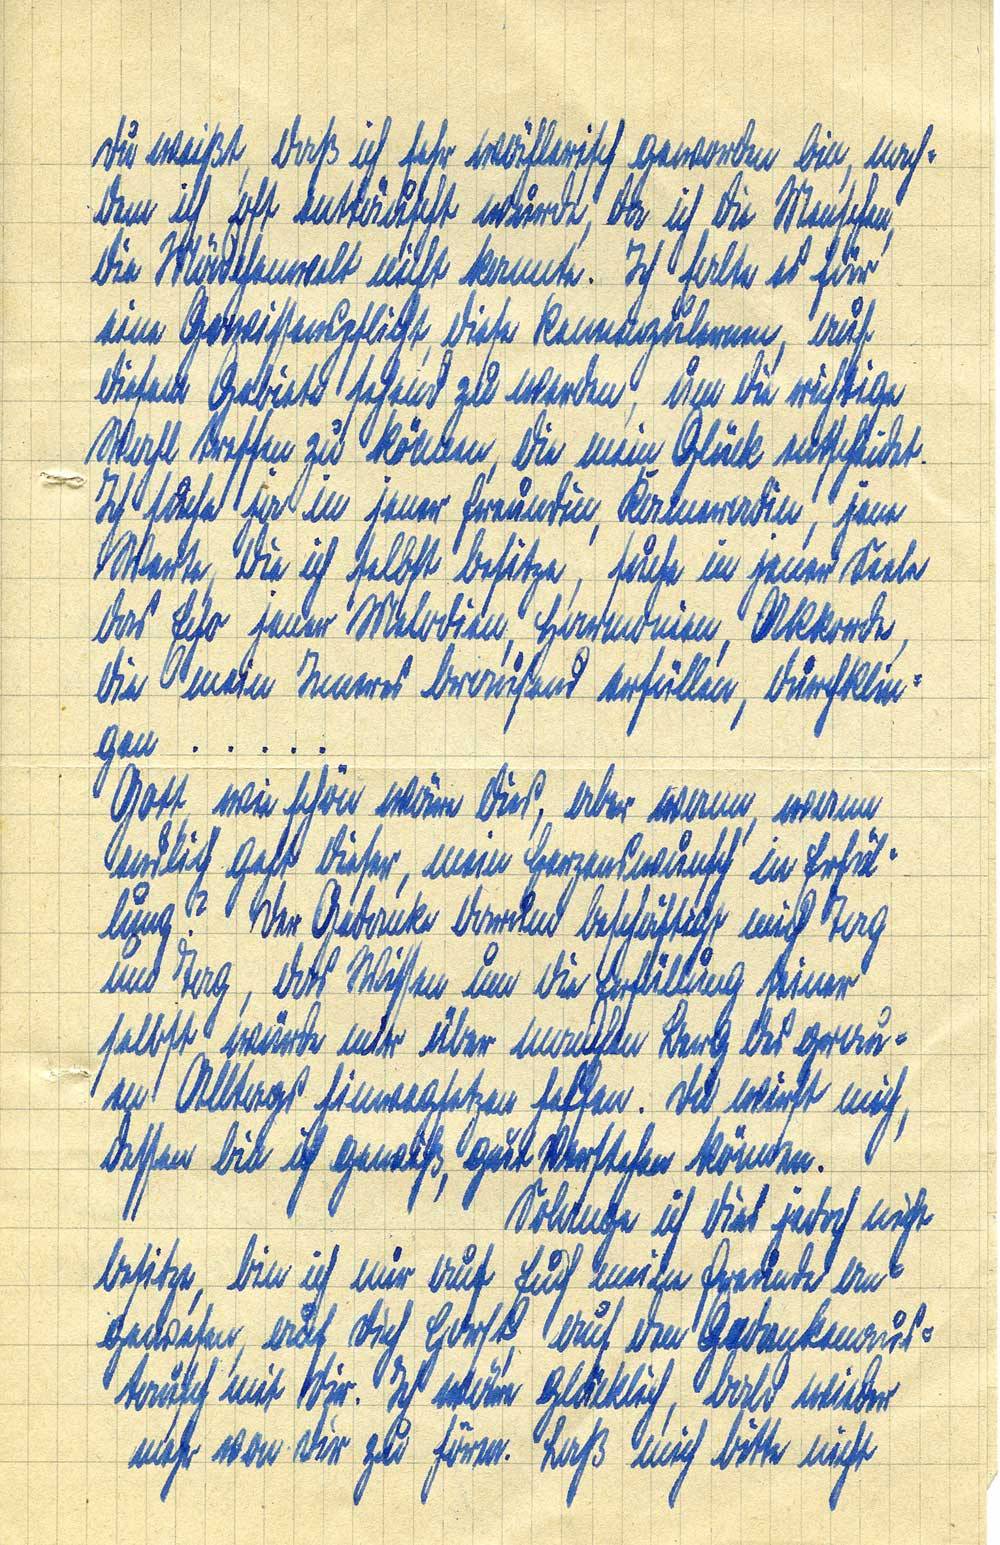 Du weißt, daß ich sehr wählerisch geworden bin, nach=
dem ich oft enttäuscht wurde, da ich die Menschen,
die Mädchenwelt nicht kannte. Ich halte es für
eine Gewissenspflicht, diese kennenzulernen, auf
diesem Gebiete sehend zu werden, um die richtige
Wahl treffen zu können, die mein Glück entscheidet.
Ich suche ja in jener Freundin, Kameradin, jene
Werte, die ich selbst besitze, suche in jener Seele
das Echo jener Melodien, Harmonien, Akkorde,
die mein Inneres brausend erfüllen, durchklin=
gen . . . . . .
Gott, wie schön wäre dies, aber wann, wann
endlich geht dieser, mein Herzenswunsch in Erfül=
lung? Der Gedanke daran beschäftigt mich Tag
um Tag, das Wissen um die Erfüllung seiner
selbst würde mir über manchen Berg des grau=
en Alltags hinwegsetzen helfen. Du wirst mich,
dessen bin ich gewiß, gut verstehen können.
Solange ich dies jedoch nicht
besitze, bin ich nur auf Euch meine Freunde an=
gewiesen, auf Dich Horst, auf den Gedankenaus=
tausch mit Dir. Ich wäre glücklich, bald wieder
mehr von Dir zu hören. Laß mich bitte nicht